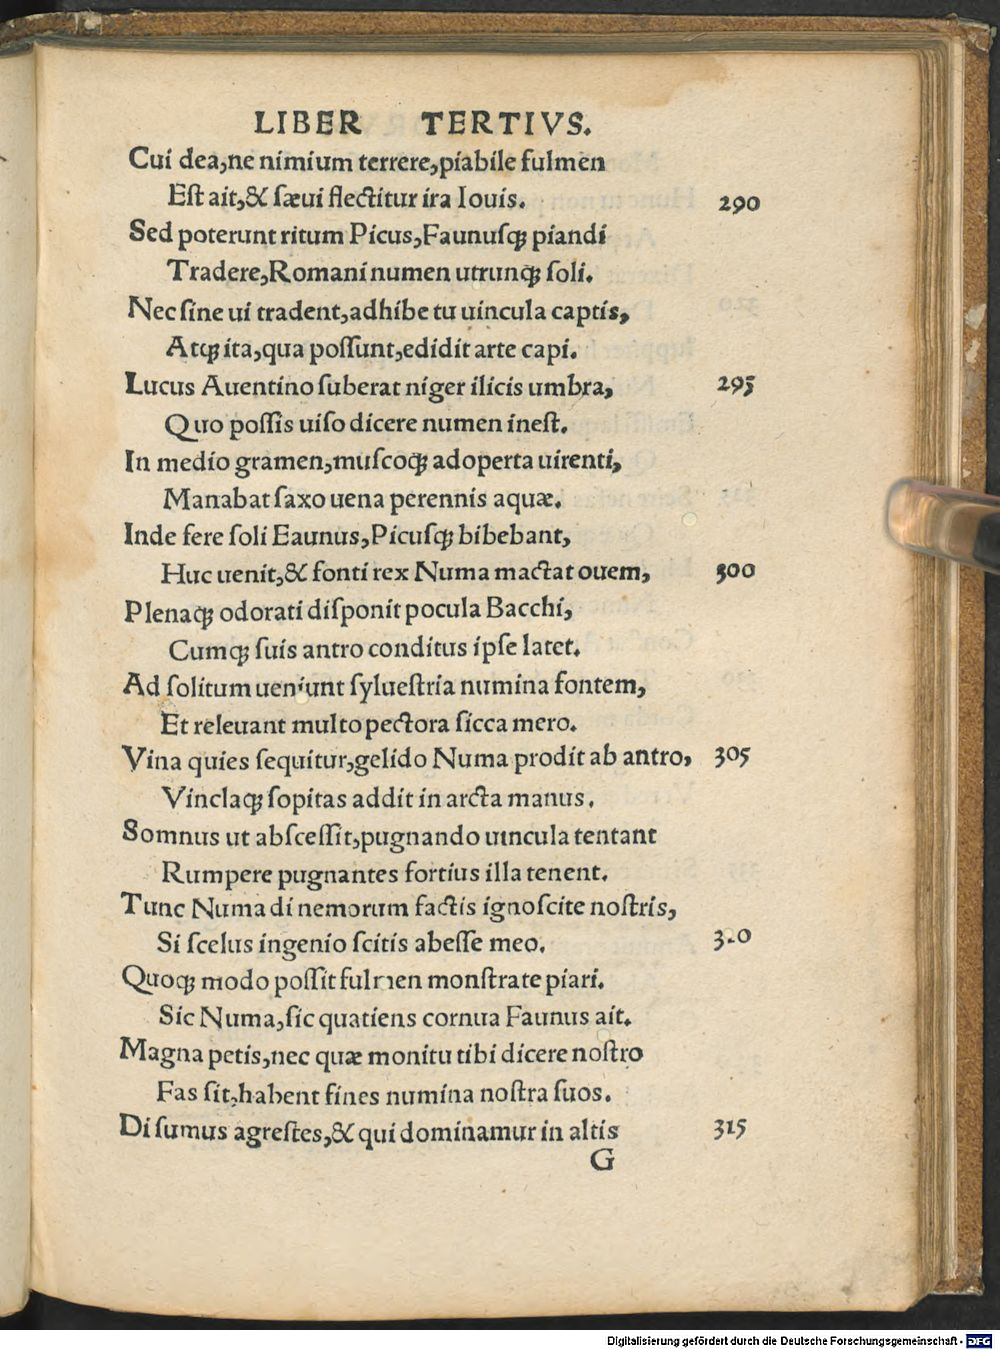 LIBER TERTIVS.
Cui dea,ne nimium terrere,piabile fulmen
Est ait,& sæui flectitur ira Iouis. 290
Sed poterunt ritum Picus,Faunusqꝫ piandi
Tradere,Romani numen utrunqꝫ soli.
Nec sine ui tradent,adhibe tu uincula captis,
Atqꝫ ita,qua possunt,edidit arte capi.
Lucus Auentino suberat niger ilicis umbra, 295
Quo possis uiso dicere numen inest.
In medio gramen,muscoqꝫ adoperta uirenti,
Manabat saxo uena perennis aquæ.
Inde fere soli Eaunus,Picusqꝫ bibebant,
Huc uenit,& fonti rex Numa mactat ouem, 300
Plenaqꝫ odorati disponit pocula Bacchi,
Cumqꝫ suis antro conditus ipse latet.
Ad solitum ueniunt syluestria numina fontem,
Et releuant multo pectora sicca mero.
Vina quies sequitur,gelido Numa prodit ab antro, 305
Vinclaqꝫ sopitas addit in arcta manus.
Somnus ut abscessit,pugnando uincula tentant
Rumpere pugnantes fortius illa tenent.
Tunc Numa di nemorum factis ignoscite nostris,
Si scelus ingenio scitis abesse meo. 310
Quoqꝫ modo possit fulmen monstrate piari.
Sic Numa,sic quatiens cornua Faunus ait.
Magna petis,nec quæ monitu tibi dicere nostro
Fas sit,habent fines numina nostra suos.
Di sumus agrestes,& qui dominamur in altis 315
G
Digitalisierung gefördert durch die Deutsche Forschungsgemeinschaft - DFG